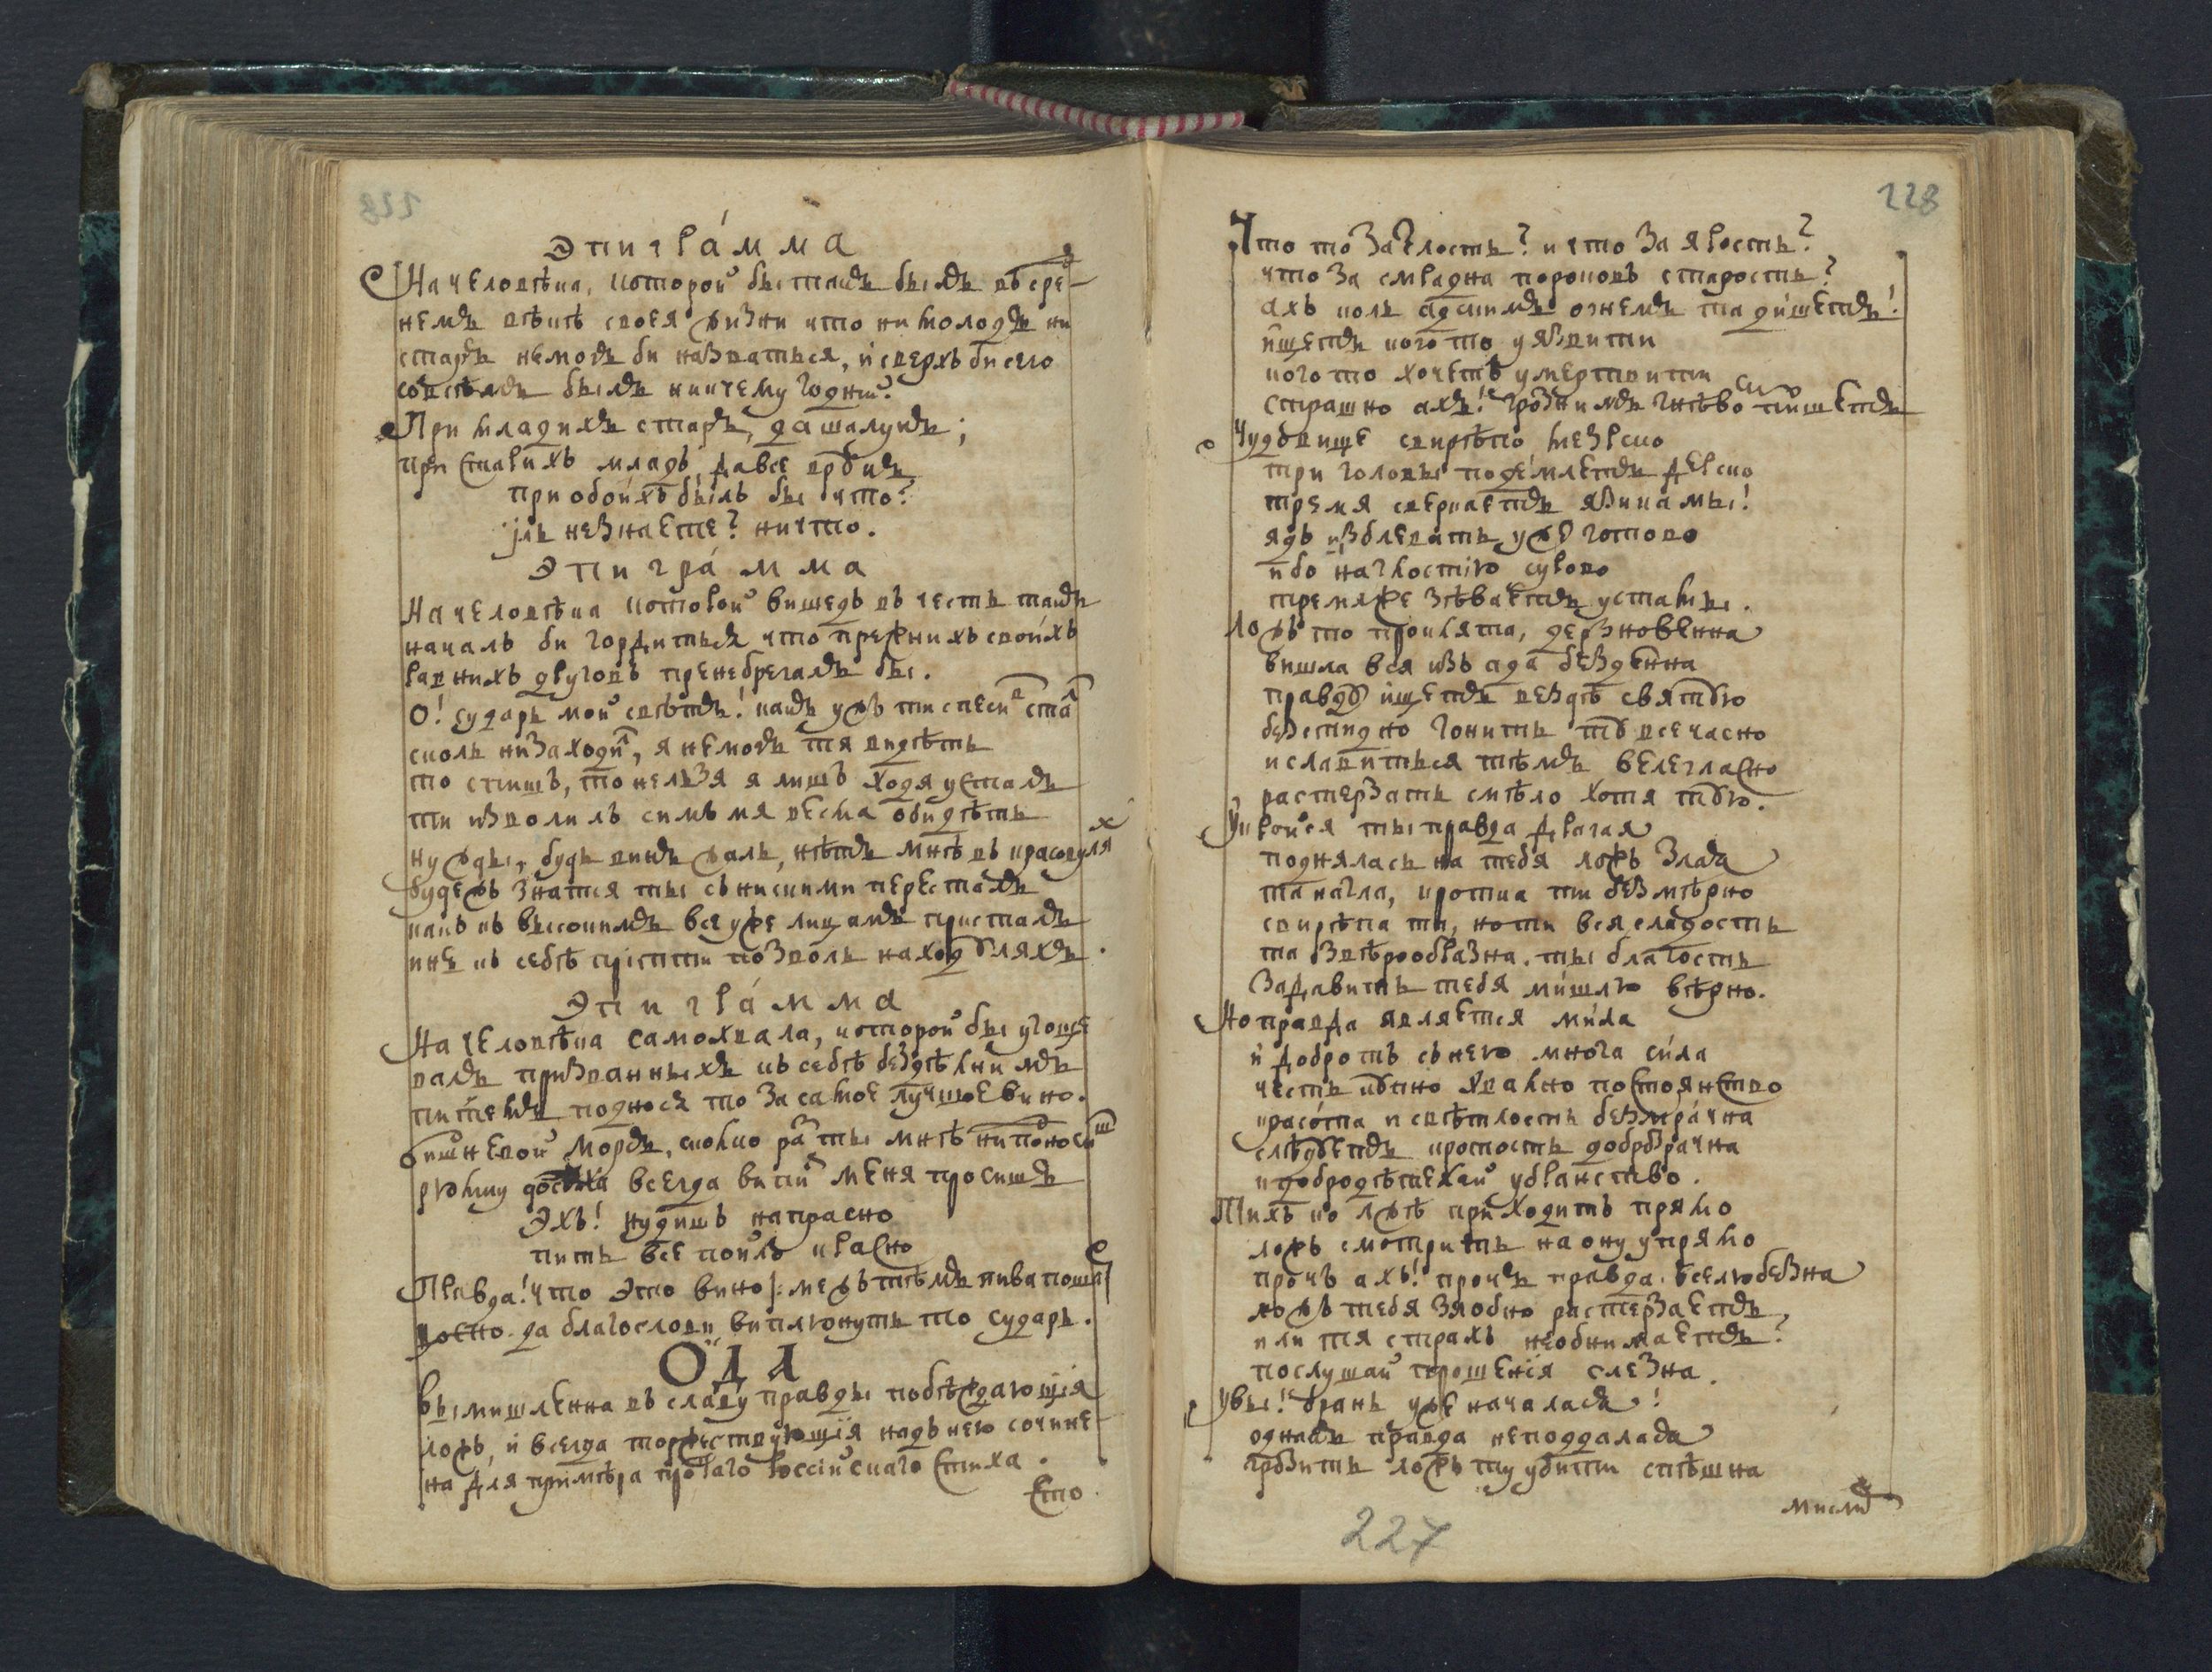 Эпиграмма
На человѣка, которой бы такъ былъ въ сре-
немъ вѣкѣ своея жизни что ни молодъ ни
старъ немогъ би назваться, и сверхъ би сего
совсѣмъ былъ никчему годний
При младихъ старъ, да шалунъ;
при старихъ младъ, да все врунъ
при обоихъ былъ бы что?
иль незнаете? ничто.
Эпиграмма
На человѣка которой вишедъ въ честь такъ
началъ би гордиться что прежнихъ своихъ
равнихъ друговъ пренебрегалъ бы.
О! сударь мой свѣтъ! какъ ужъ ти спесивъ сталъ
сколь ни заходилъ, я немогъ тя видѣть
то спишъ, то нельзя я лишъ ходя усталъ
ти изволилъ симъ мя весма обидѣть
ну жды, будь жаль, нѣтъ мнѣ въ красовуляхъ
будежъ знатся ты съ нискими пересталъ
какъ къ высокимъ все уже лицамъ присталъ
ине къ себѣ прiитти позволь на ходуляхъ.
Эпиграмма
На человѣка самохвала, которой бы угоще
валъ призванныхъ къ себѣ бездѣлнимъ
питiемъ поднося то за самое лучшое вино.
вишневой морсъ, сколко разъ ты мнѣ ни поносишъ
рюмку всегда випить меня просишъ
Эхъ! нудишъ напрасно
пить все пойло красно
Правда! что это вино /: межъ тѣмъ пива пошарь
да благослови виплюнуть то сударь.
ОДА
Вымишленна въ славу правды побѣждающiя
ложь, и всегда торжествующiя надъ нею сочине-
на для примѣра простаго россiйскаго стиха.
Что
228
Что то за злость? и что за ярость?
что за смрадна пороковъ старость?
ахъ коль адскимъ огнемъ та дишетъ!
ищетъ кого то уязвити
кого то хочетъ умертвити
страшно ахъ! грознимъ гнѣвомъ пишетъ
Чудовище свирѣпо мезрско
три головы подемлетъ дерско
тремя сверкаетъ язиками!
ядъ изблевать уже готово
ибо наглостiю сурово
тремяже зѣваетъ устамы.
Ложъ то проклята, дерзновенна
вишла вся изъ ада бездежна
правду ищетъ вездѣ святую
безстидно гонитъ ту всечасно
и славиться тѣмъ велегласно
растерзать смѣло хотя тую.
Укройся ты правда драгая
поднялась на тебя ложь злая
та нагла, кротка ти безмѣрно
свирѣпа та, но ти вся сладость
та звѣрообразна, ты благость
задавитъ тебя мишлю вѣрно.
Но правда является мила
и добротъ съ нею многа сила
честь купно хвално постоянство
красота и свѣтлость безмрачна
слѣдуетъ кротость доброзрачна
и добродѣтелей убранство.
Тихъ ко лжѣ приходитъ прямо
ложь смотритъ на ону упрямо
прочъ ахъ! прочъ правда вселюбезна
ложъ тебя злобно растерзаетъ
или тя страхъ необнимаетъ?
послушай прошенiя слезна.
Увы! брань уже началась!
однакъ правда неподдалась
грозитъ ложъ ту убити спѣшна
мислитъ
227